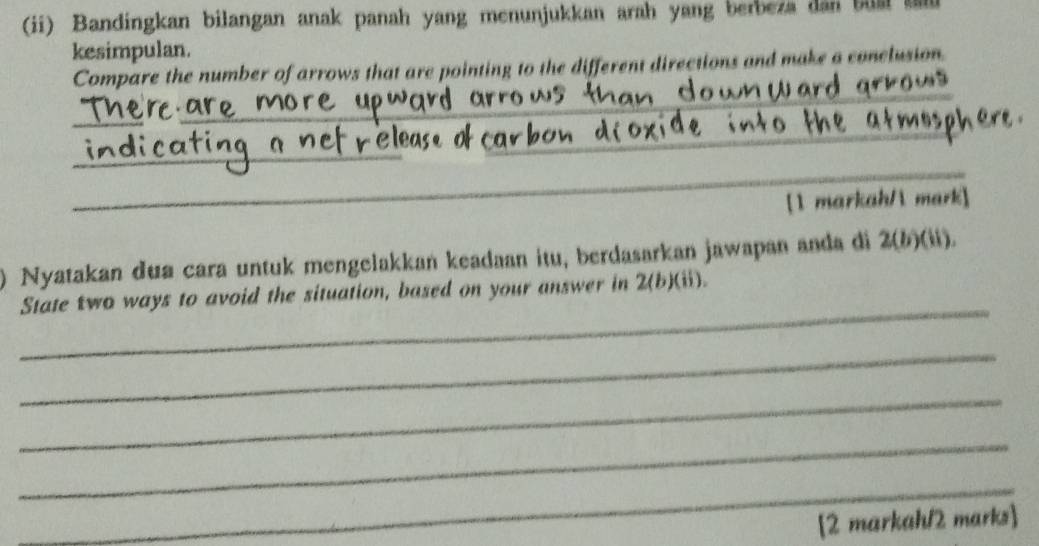 (ii) Bandingkan bilangan anak panah yang menunjukkan arah yang berbeza dan buat satu
kesimpulan.
Compare the number of arrows that are pointing to the different directions and make a conclusion.
There are more upward arrows than downward arrows
indicating a net release of carbon dioxide into the atmosphere.
[1 markah/1 mark]
) Nyatakan dua cara untuk mengelakkan keadaan itu, berdasarkan jawapan anda di 2(b)(ii).
State two ways to avoid the situation, based on your answer in 2(b)(ii).
[2 markah/2 marks]